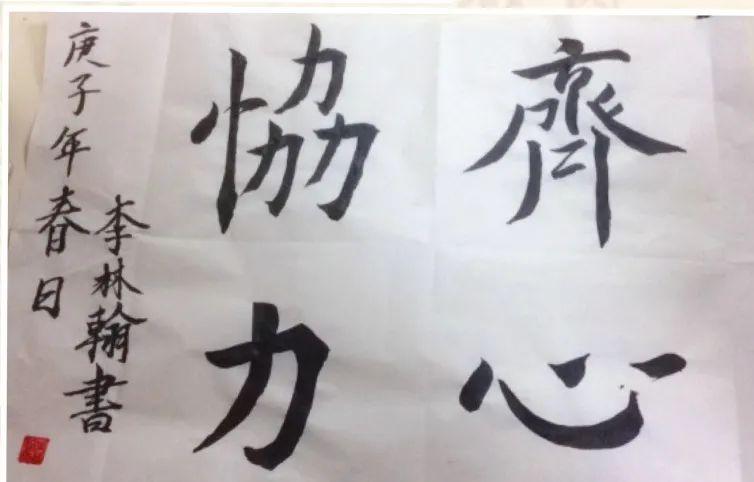 齊心
恊力
庚子年春日
李林翰書